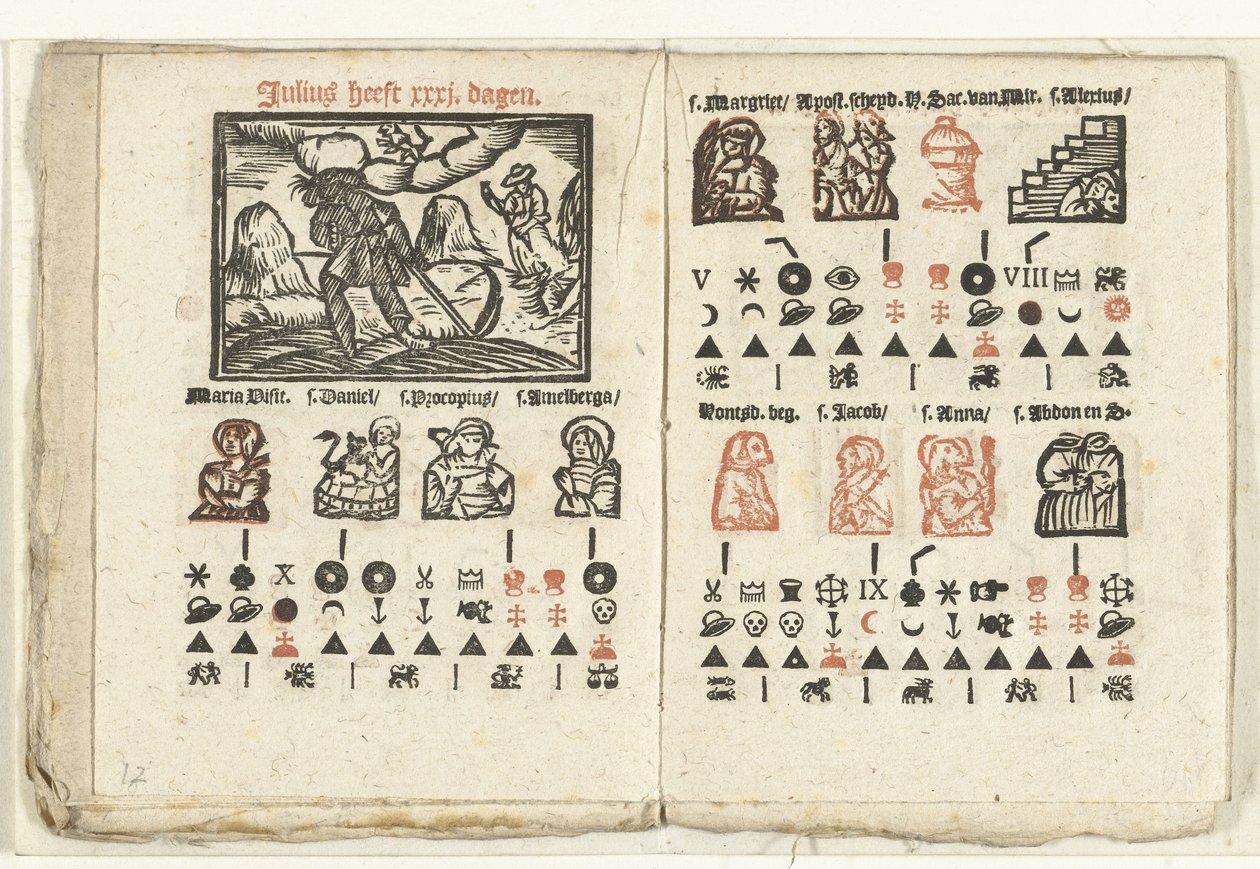 Julius heeft xxxj. dagen.
Maria Visit. s. Daniel/ s. Procopius/ s. Amelberga/
X
12
s. Margriet/ Apost. scheyd. H. Sac. van Mir. s. Alexius/
V VIII
Hontsd. beg. s. Jacob/ s. Anna/ s. Abdon en S.
IX